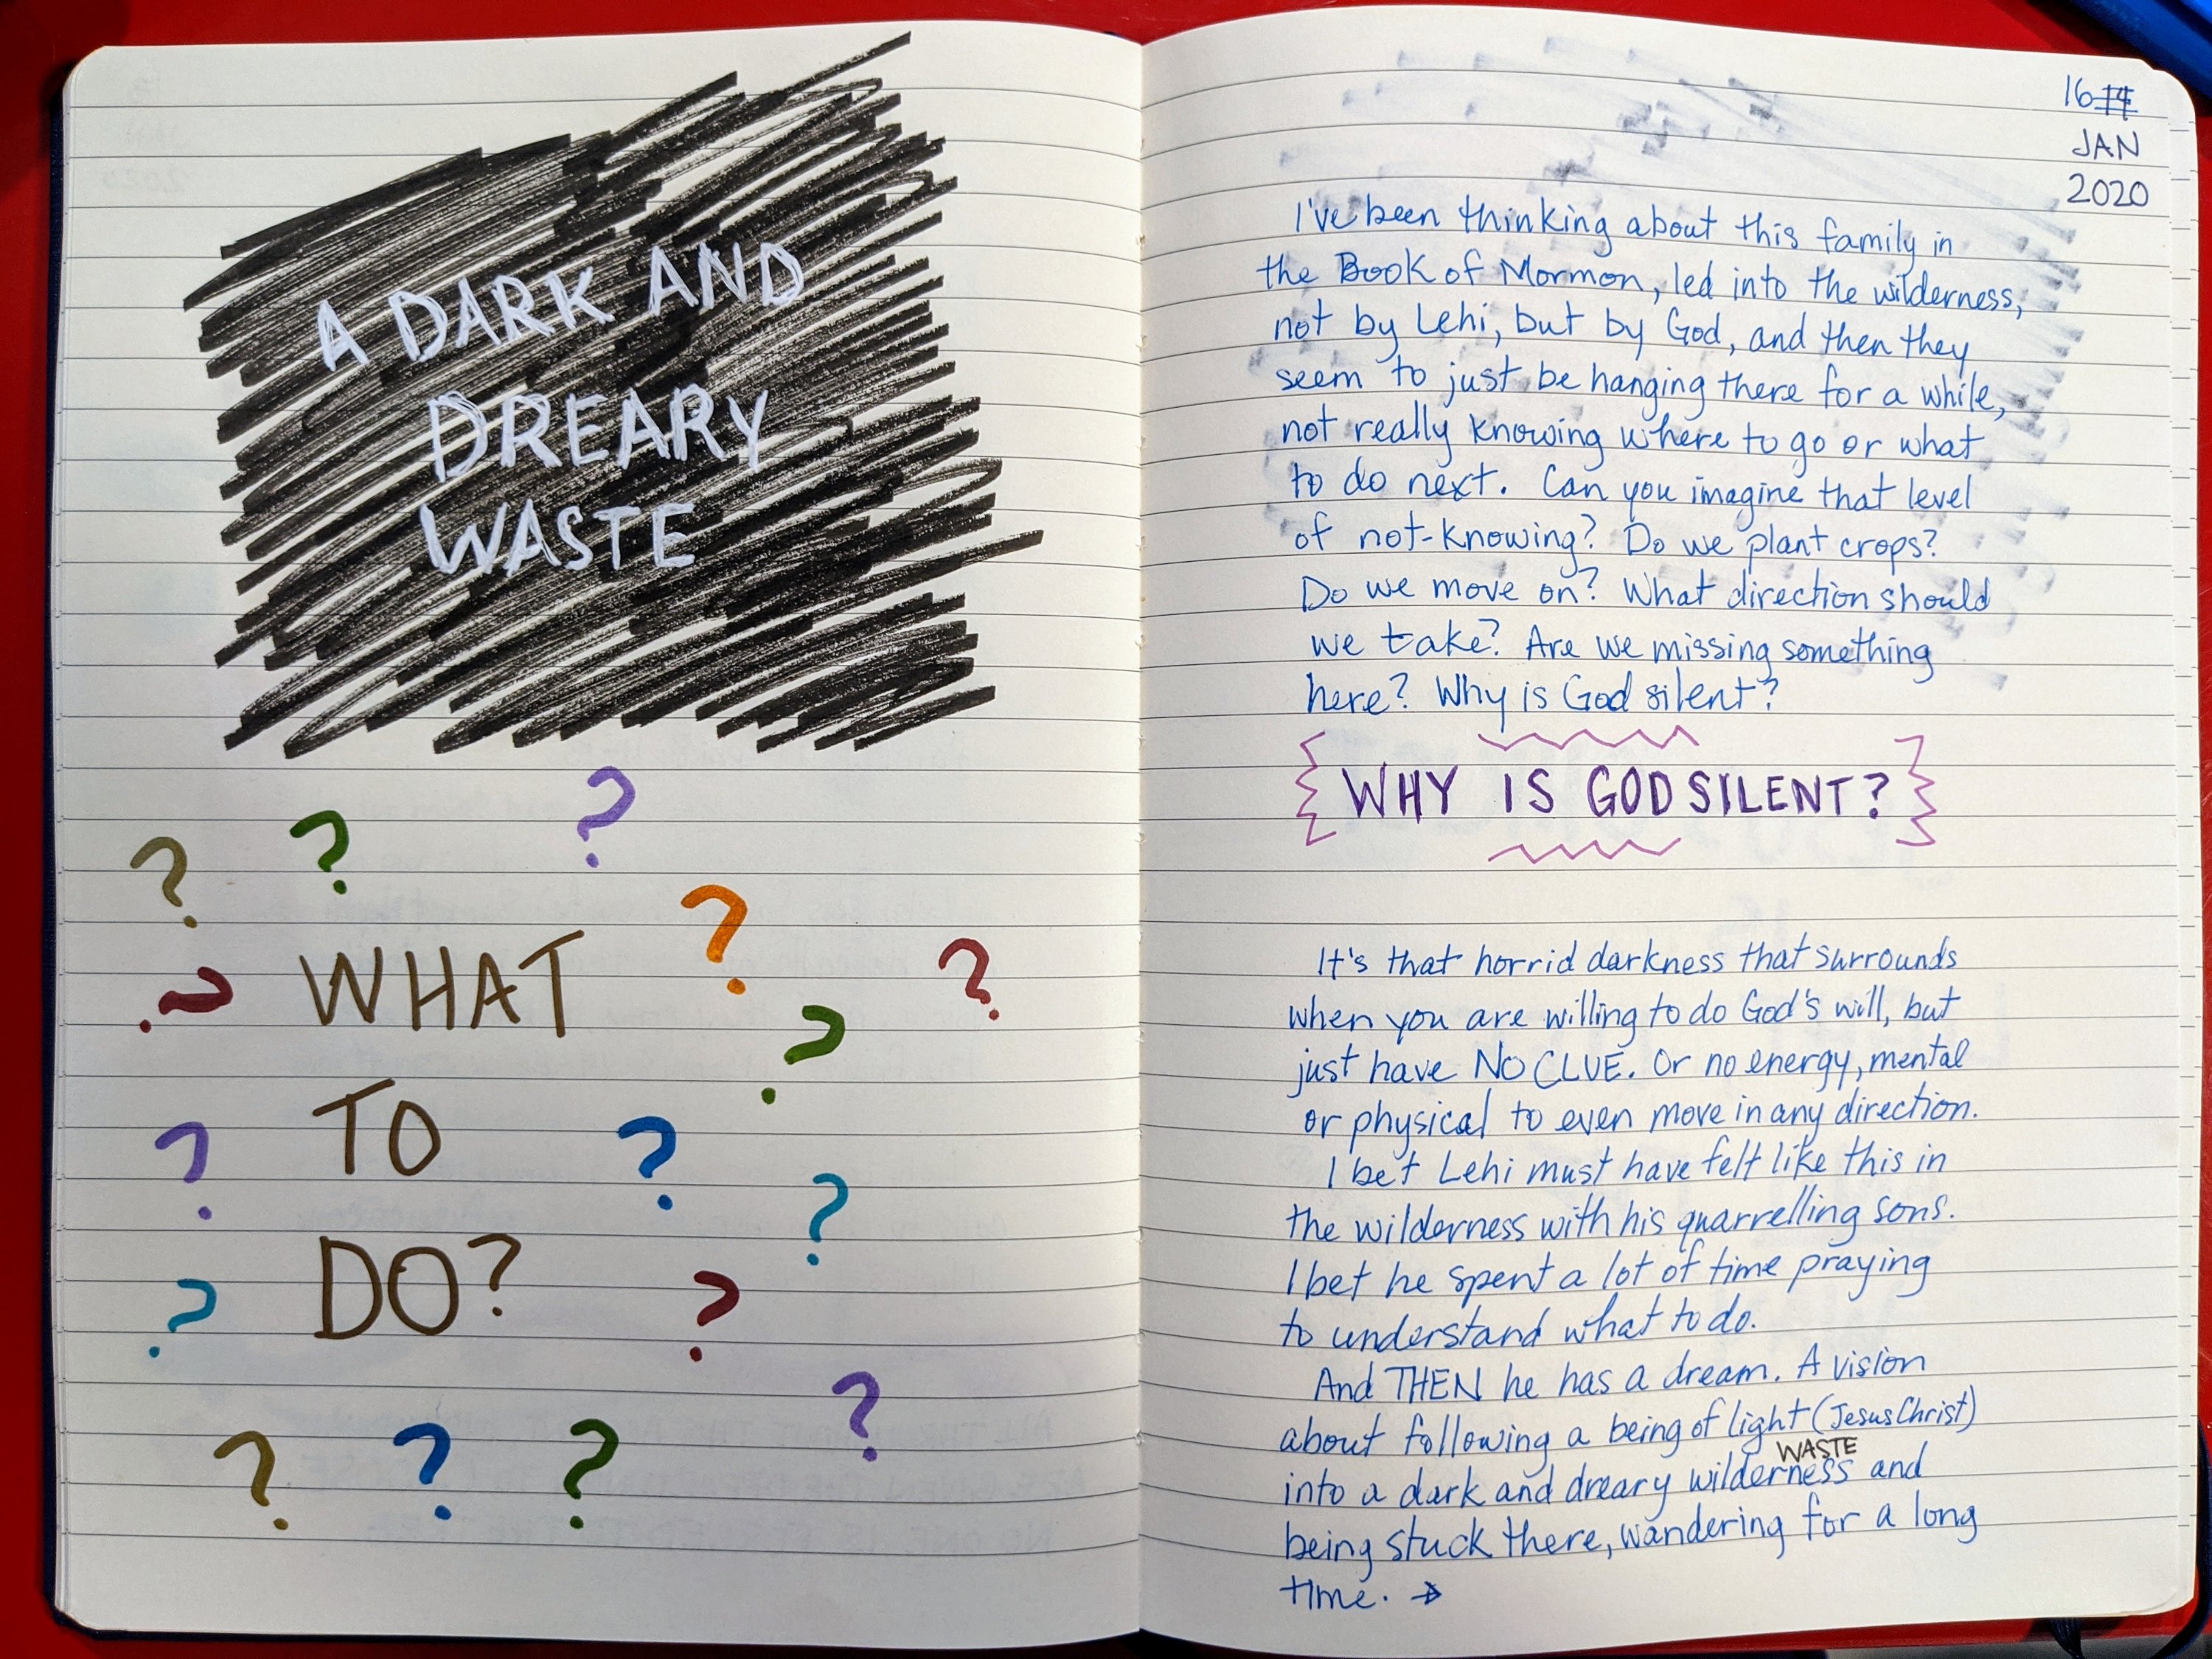 A DARK AND
DREARY
WASTE
? ? ?
? ?
WHAT
? ?
?
TO
? ?
?
DO?
? ?
?
? ? ?
16
JAN
2020
I've been thinking about this family in
the Book of Mormon, led into the wilderness,
not by Lehi, but by God, and then they
seem to just be hanging there for a while,
not really knowing where to go or what
to do next. Can you imagine that level
of not-knowing? Do we plant crops?
Do we move on? What direction should
we take? Are we missing something
here? Why is God silent?
WHY IS GOD SILENT?
It's that horrid darkness that surrounds
when you are willing to do God's will, but
just have NO CLUE. Or no energy, mental
or physical to even move in any direction.
I bet Lehi must have felt like this in
the wilderness with his quarrelling sons.
I bet he spent a lot of time praying
to understand what to do.
And THEN he has a dream. A vision
about following a being of light (Jesus Christ)
WASTE
into a dark and dreary wilderness and
being stuck there, wandering for a long
time. →